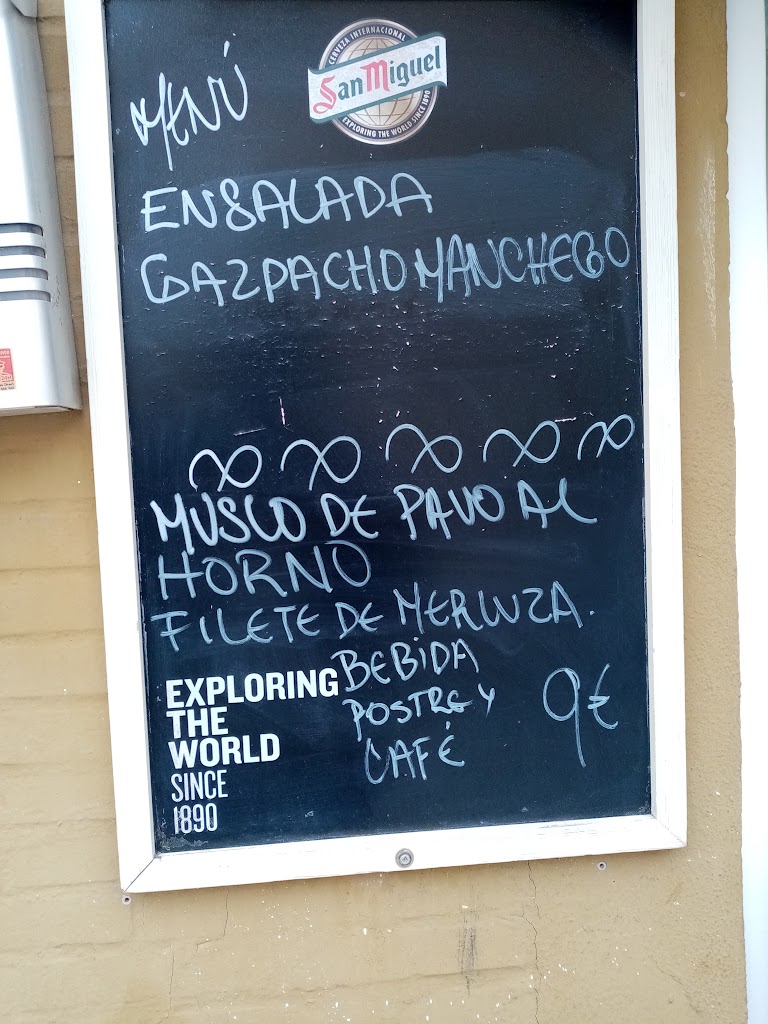 CERVEZA INTERNACIONAL
San Miguel
EXPLORING THE WORLD SINCE 1890
MENÚ
ENSALADA
GAZPACHO MANCHEGO
MUSLO DE PAVO AL
HORNO
FILETE DE MERLUZA.
BEBIDA
POSTRE Y
CAFÉ
9€
EXPLORING
THE
WORLD
SINCE
1890